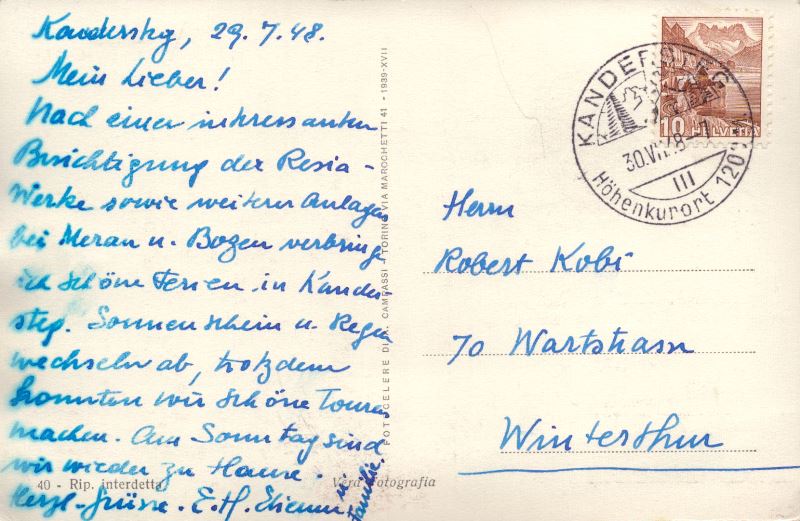 Kandersteg, 29.7.48.
Mein Lieber!
Nach einer interessanten
Besichtigung der Resia-
Werke sowie weiterer Anlagen
bei Meran u. Bozen verbringe
ich schöne Ferien in Kander
steg. Sonnenschein u. Regen
wechseln ab, trotzdem
konnten wir schöne Touren
machen. Am Sonntag sind
wir wieder zu Hause.
Herzl. Grüsse. E.H.
u. Familie.
40 - Rip. interdetta
Vera Fotografia
FOTOCELERE DI CAMPASSI - TORINO VIA MAROCHETTI 41 - 1939-XVII
KANDERSTEG
30.VII.48
III
Höhenkurort 120
10 HELVETIA
Herrn
Robert Kobi
70 Wartstrasse
Winterthur